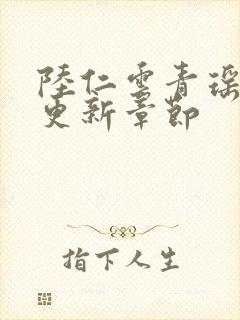 陸仁雲青瑶
更新章節
指下人生